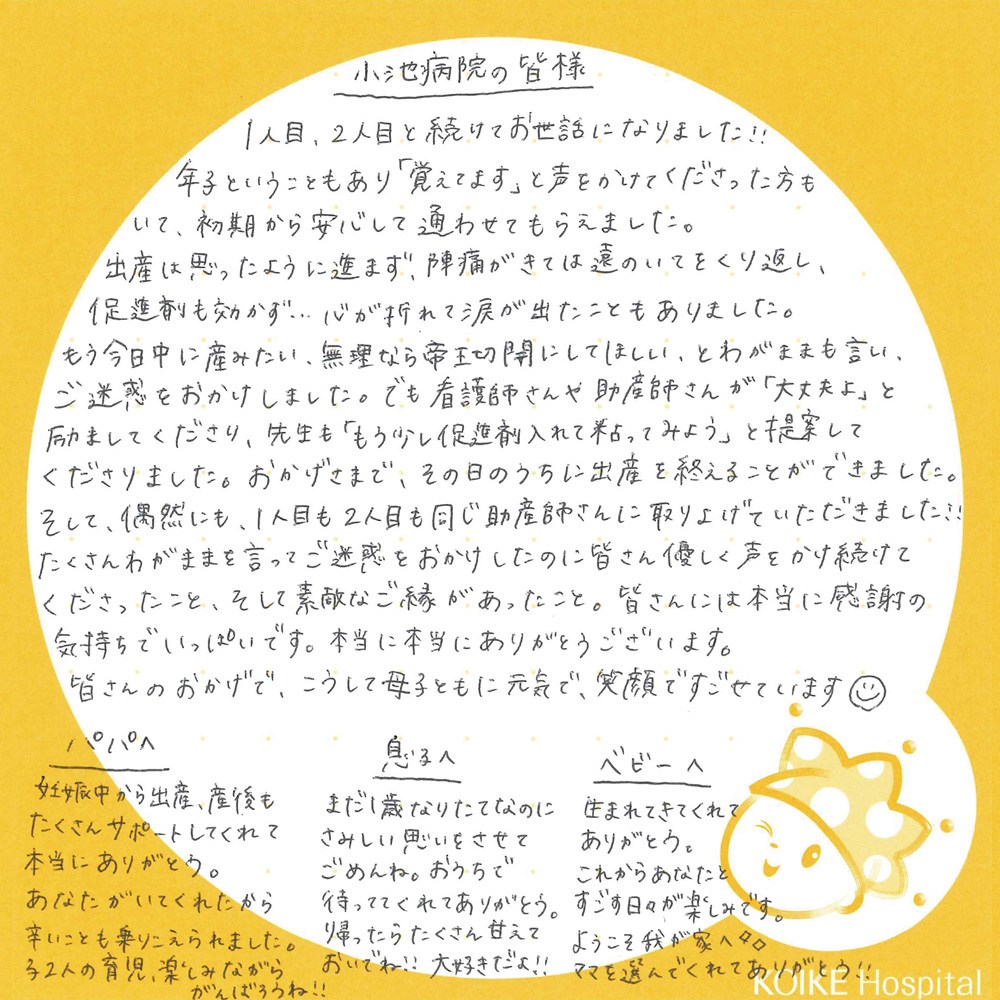 小池病院の皆様
1人目、2人目と続けてお世話になりました!!
年子ということもあり「覚えてます」と声をかけてくださった方も
いて、初期から安心して通わせてもらえました。
出産は思ったように進まず、陣痛がきては遠のいてをくり返し、
促進剤も効かず… 心が折れて涙が出たこともありました。
もう今日中に産みたい、無理なら帝王切開にしてほしい、とわがままも言い、
ご迷惑をおかけしました。でも看護師さんや助産師さんが「大丈夫よ」と
励ましてくださり、先生も「もう少し促進剤入れて粘ってみよう」と提案して
くださりました。おかげさまで、その日のうちに出産を終えることができました。
そして、偶然にも、1人目も2人目も同じ助産師さんに取り上げていただきました!!
たくさんわがままを言ってご迷惑をおかけしたのに皆さん優しく声をかけ続けて
くださったこと、そして素敵なご縁があったこと。皆さんには本当に感謝の
気持ちでいっぱいです。本当に本当にありがとうございます。
皆さんのおかげで、こうして母子ともに元気で、笑顔ですごせています☺
パパへ
妊娠中から出産、産後も
たくさんサポートしてくれて
本当にありがとう。
あなたがいてくれたから
辛いことも乗りこえられました。
子2人の育児、楽しみながら
がんばろうね!!
息子へ
まだ1歳なりたてなのに
さみしい思いをさせて
ごめんね。おうちで
待っててくれてありがとう。
帰ったらたくさん甘えて
おいでね!! 大好きだよ!!
ベビーへ
生まれてきてくれて
ありがとう。
これからあなたと
すごす日々が楽しみです。
ようこそ我が家へ
ママを選んでくれてありがとう!!
KOIKE Hospital